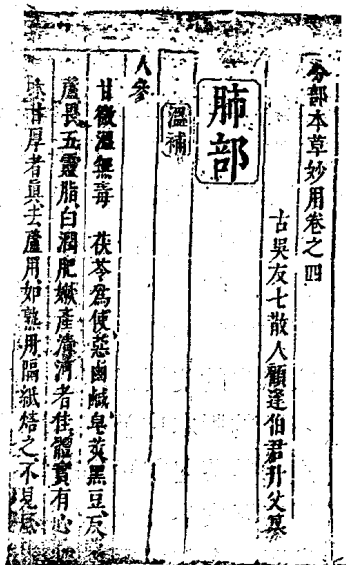 分部本草妙用卷之四
古吳友七散人顧逢伯君升父纂
肺部
溫補
人參
甘微溫無毒 茯苓為使惡鹵鹹皂莢黑豆反
蘆畏五靈脂白潤肥嫩產清河者佳體實有心
味甘厚者真去蘆用如熟用隔紙焙之不見